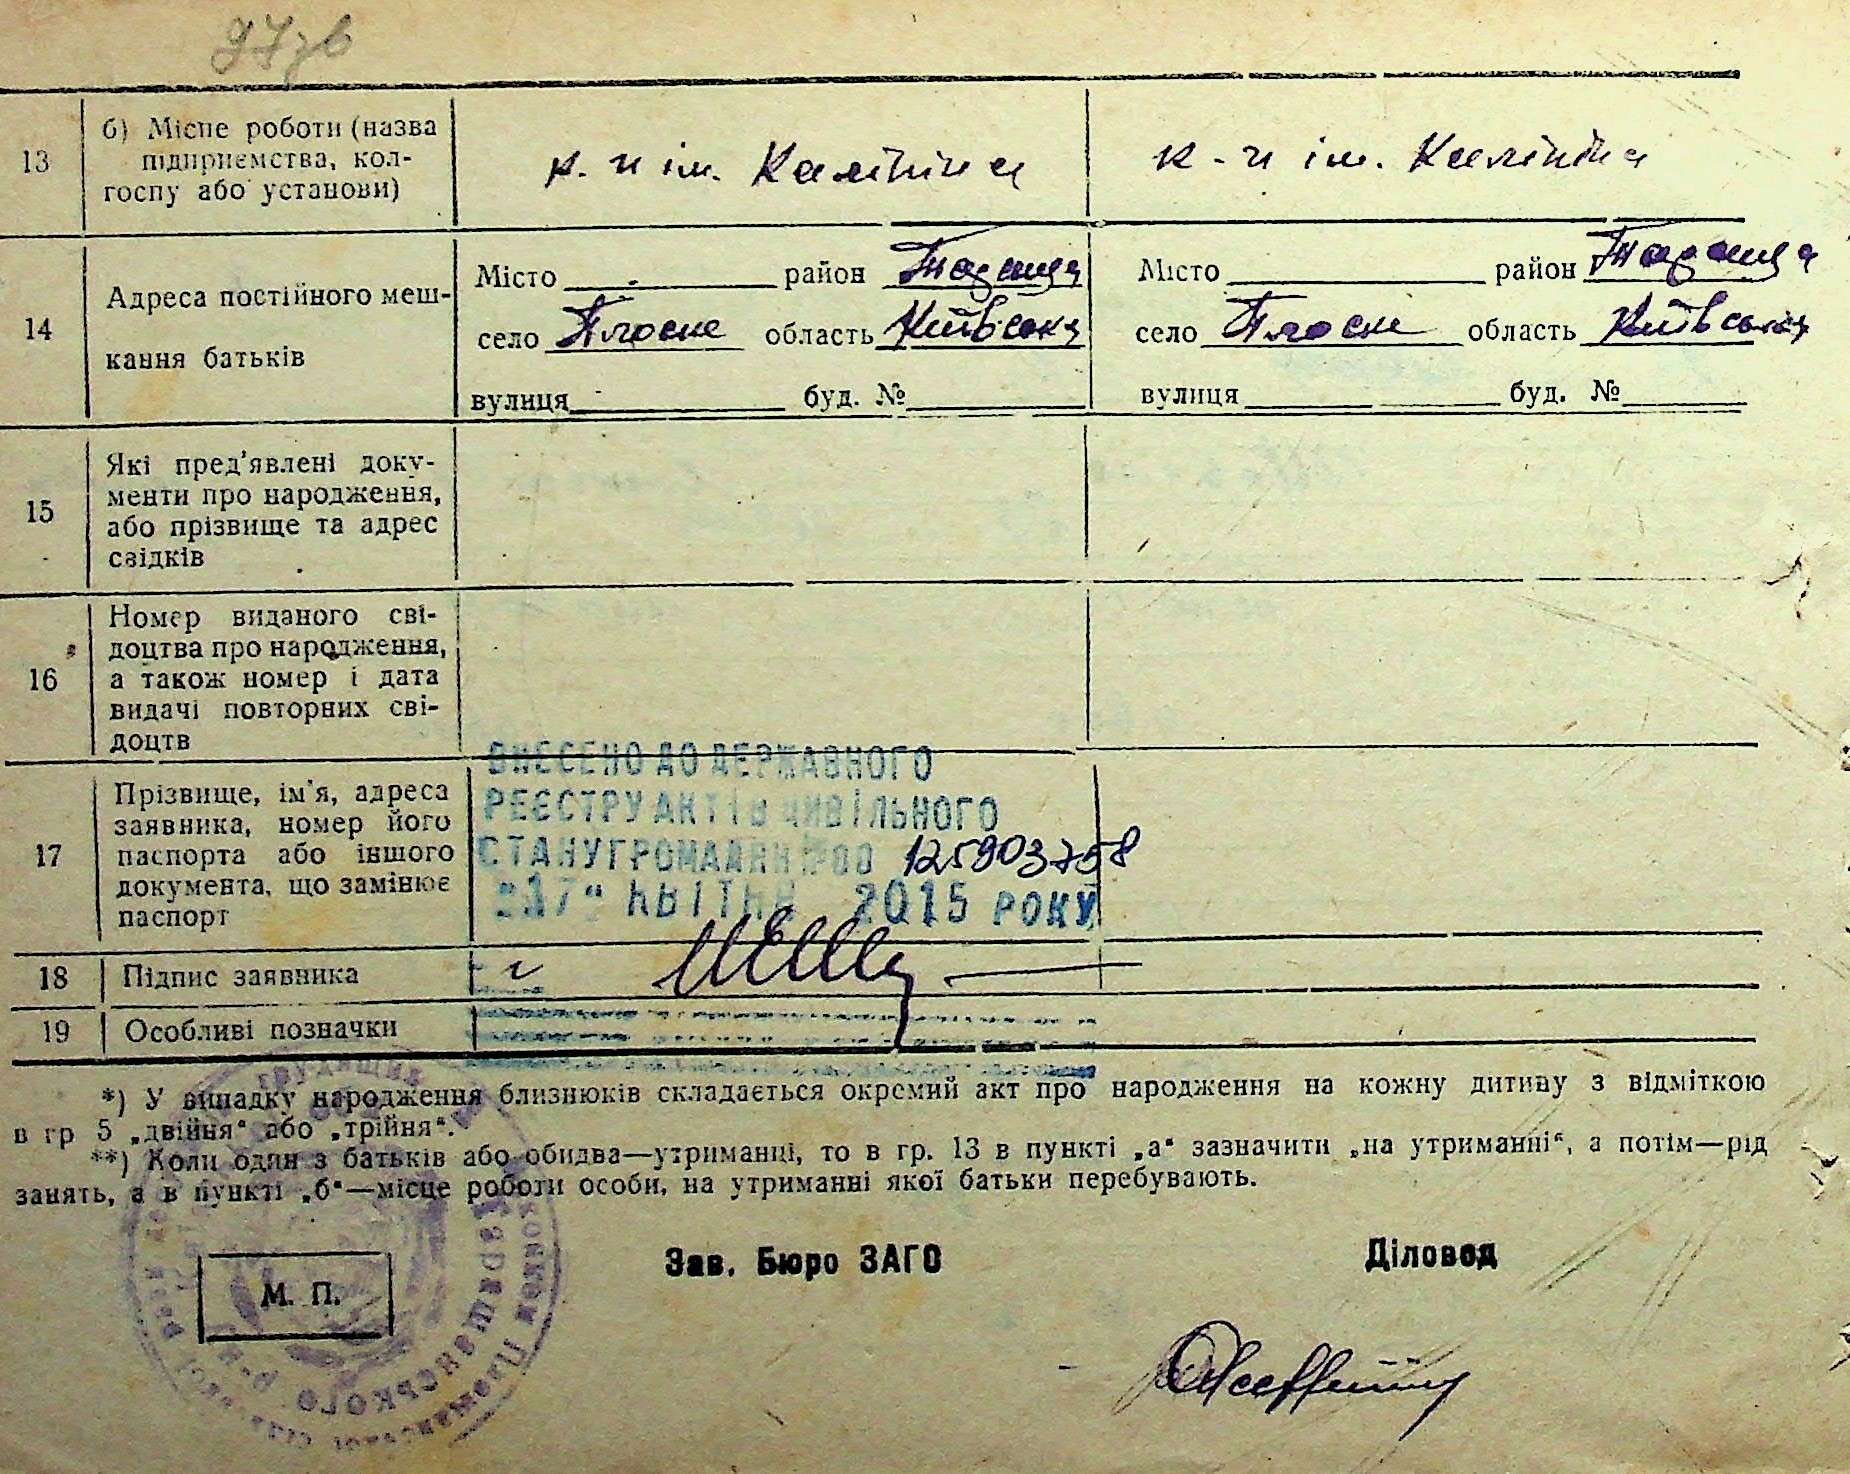 97зв
13
б) Місце роботи (назва
підприємства, кол-
госпу або установи)
к-п ім. Калініна
к-п ім. Калініна
14
Адреса постійного меш-
кання батьків
Місто район Тараща
село Плоске область Київська
вулиця буд. №
Місто район Тараща
село Плоске область Київська
вулиця буд. №
15
Які пред'явлені доку-
менти про народження,
або прізвище та адрес
свідків
16
Номер виданого сві-
доцтва про народження,
а також номер і дата
видачі повторних сві-
доцтв
17
Прізвище, ім'я, адреса
заявника, номер його
паспорта або іншого
документа, що замінює
паспорт
ВНЕСЕНО ДО ДЕРЖАВНОГО
РЕЄСТРУ АКТІВ ЦИВІЛЬНОГО
СТАНУ ГРОМАДЯН №00 125903758
"17" КВІТНЯ 2015 РОКУ
18
Підпис заявника
19
Особливі позначки
*) У випадку народження близнюків складається окремий акт про народження на кожну дитину з відміткою
в гр 5 „двійня“ або „трійня“.
**) Коли один з батьків або обидва—утриманці, то в гр. 13 в пункті „а“ зазначити „на утриманні“, а потім—рід
занять, а в пункті „б“—місце роботи особи, на утриманні якої батьки перебувають.
М. П.
Зав. Бюро ЗАГС
Діловод